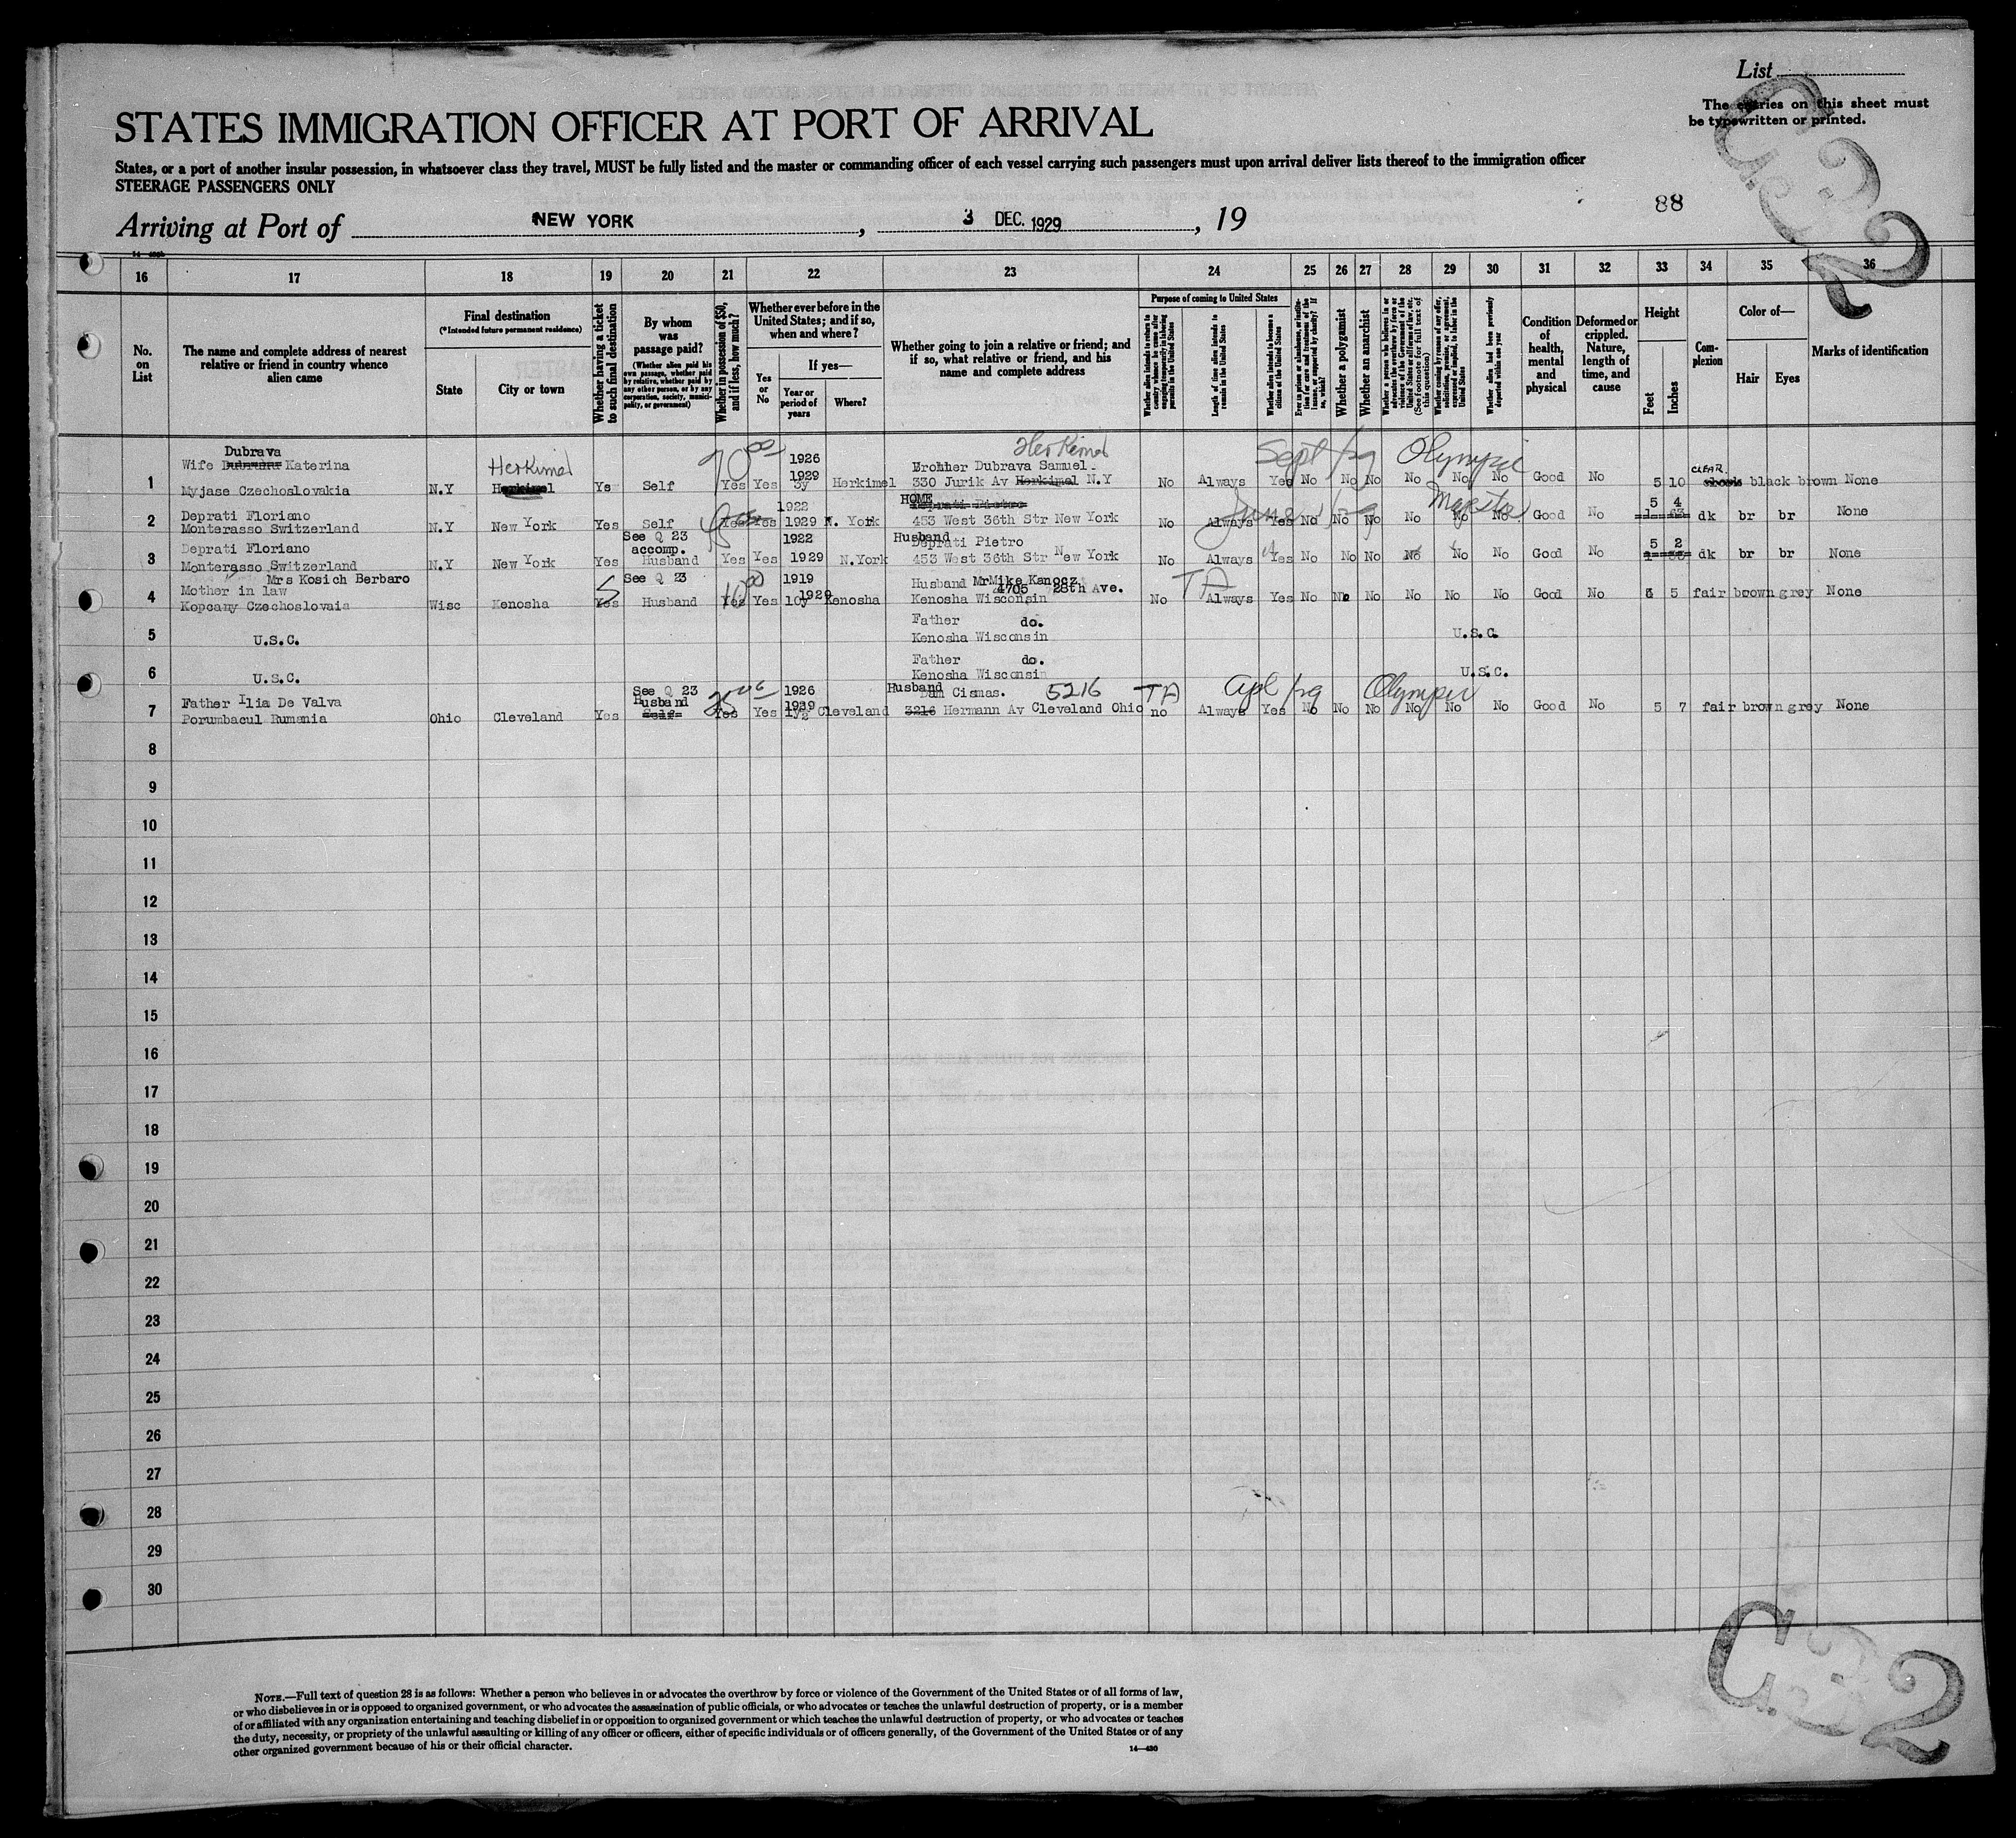 List
The entries on this sheet must
be typewritten or printed.
STATES IMMIGRATION OFFICER AT PORT OF ARRIVAL
States, or a port of another insular possession, in whatsoever class they travel, MUST be fully listed and the master or commanding officer of each vessel carrying such passengers must upon arrival deliver lists thereof to the immigration officer
STEERAGE PASSENGERS ONLY
88
Arriving at Port of NEW YORK, 3 DEC. 1929, 19
16 17 18 19 20 21 22 23 24 25 26 27 28 29 30 31 32 33 34 35 36
No. on List
The name and complete address of nearest relative or friend in country whence alien came
Final destination
(*Intended future permanent residence)
State
City or town
Whether having a ticket to such final destination
By whom was passage paid?
(Whether alien paid his own passage, whether paid by relative, whether paid by any other person, or by any corporation, society, municipality, or government)
Whether in possession of $50, and if less, how much?
Whether ever before in the United States; and if so, when and where?
Yes or No
If yes—
Year or period of years
Where?
Whether going to join a relative or friend; and if so, what relative or friend, and his name and complete address
Purpose of coming to United States
Length of time alien intends to remain in the United States
Whether alien intends to become a citizen of the United States
Whether a polygamist
Whether an anarchist
Whether alien had been previously deported within one year
Condition of health, mental and physical
Deformed or crippled. Nature, length of time, and cause
Height
Feet
Inches
Complexion
Color of—
Hair
Eyes
Marks of identification
Dubrava Herkimel 1926 Herkimel Sept /29 Olympic
Wife Katerina 1929 Brother Dubrava Samuel. CLEAR
1 Myjase Czechoslovakia N.Y Ys Self Yes Yes 3y Herkimel 330 Jurik Av Herkimel N.Y No Always Yes No No No No No No Good No 5 10 black brown None
1922 HOME Deprati Pietro June /29 Majestic 5 4
2 Deprati Floriano
Monterasso Switzerland N.Y New York Yes Self Yes Yes 1929 N. York 453 West 36th Str New York No Always Yes No No No No No No Good No dk br br None
See Q 23 1922 Husband
3 Deprati Floriano accomp. Deprati Pietro 5 2
Monterasso Switzerland N.Y New York Yes Husband Yes Yes 1929 N.York 453 West 36th Str New York No Always Yes No No No No No No Good No dk br br None
Mrs Kosich Berbaro See Q 23 10 00 1919 TA
4 Mother in law 1929 Husband Mr Mike Kanocz 4705 28th Ave.
Kopcany Czechoslovaia Wisc Kenosha Yes Husband Yes Yes 10y Kenosha Kenosha Wisconsin No Always Yes No No No No No No Good No 5 5 fair brown grey None
Father do.
5 U.S.C. Kenosha Wisconsin U.S.C.
Father do.
6 U.S.C. Kenosha Wisconsin U.S.C.
See Q 23 25 1926 Husband 5216 TA Apl /29 Olympic
7 Father Ilia De Valva Husband 1929 Dam Cismas.
Porumbacul Rumania Ohio Cleveland Yes Self Yes Yes 1½ Cleveland 3216 Hermann Av Cleveland Ohio no Always Yes No No No No No No Good No 5 7 fair brown grey None
8
9
10
11
12
13
14
15
16
17
18
19
20
21
22
23
24
25
26
27
28
29
30
NOTE.—Full text of question 28 is as follows: Whether a person who believes in or advocates the overthrow by force or violence of the Government of the United States or of all forms of law,
or who disbelieves in or is opposed to organized government, or who advocates the assassination of public officials, or who advocates or teaches the unlawful destruction of property, or is a member
of or affiliated with any organization entertaining and teaching disbelief in or opposition to organized government or which teaches the unlawful destruction of property, or who advocates or teaches
the duty, necessity, or propriety of the unlawful assaulting or killing of any officer or officers, either of specific individuals or of officers generally, of the Government of the United States or of any
other organized government because of his or their official character.
14—430